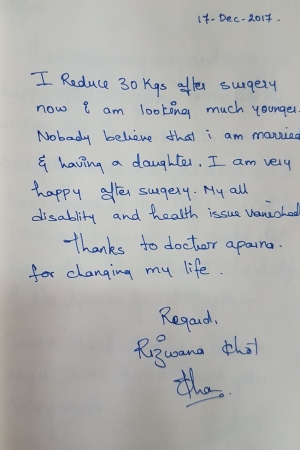 17-Dec-2017.
I Reduce 30 Kgs after surgery
now i am looking much younger.
Nobody believe that i am married
& having a daughter. I am very
happy after surgery. My all
disablity and health issue vanished
Thanks to doctor aparna.
for changing my life.
Regard,
Rizwana Khot